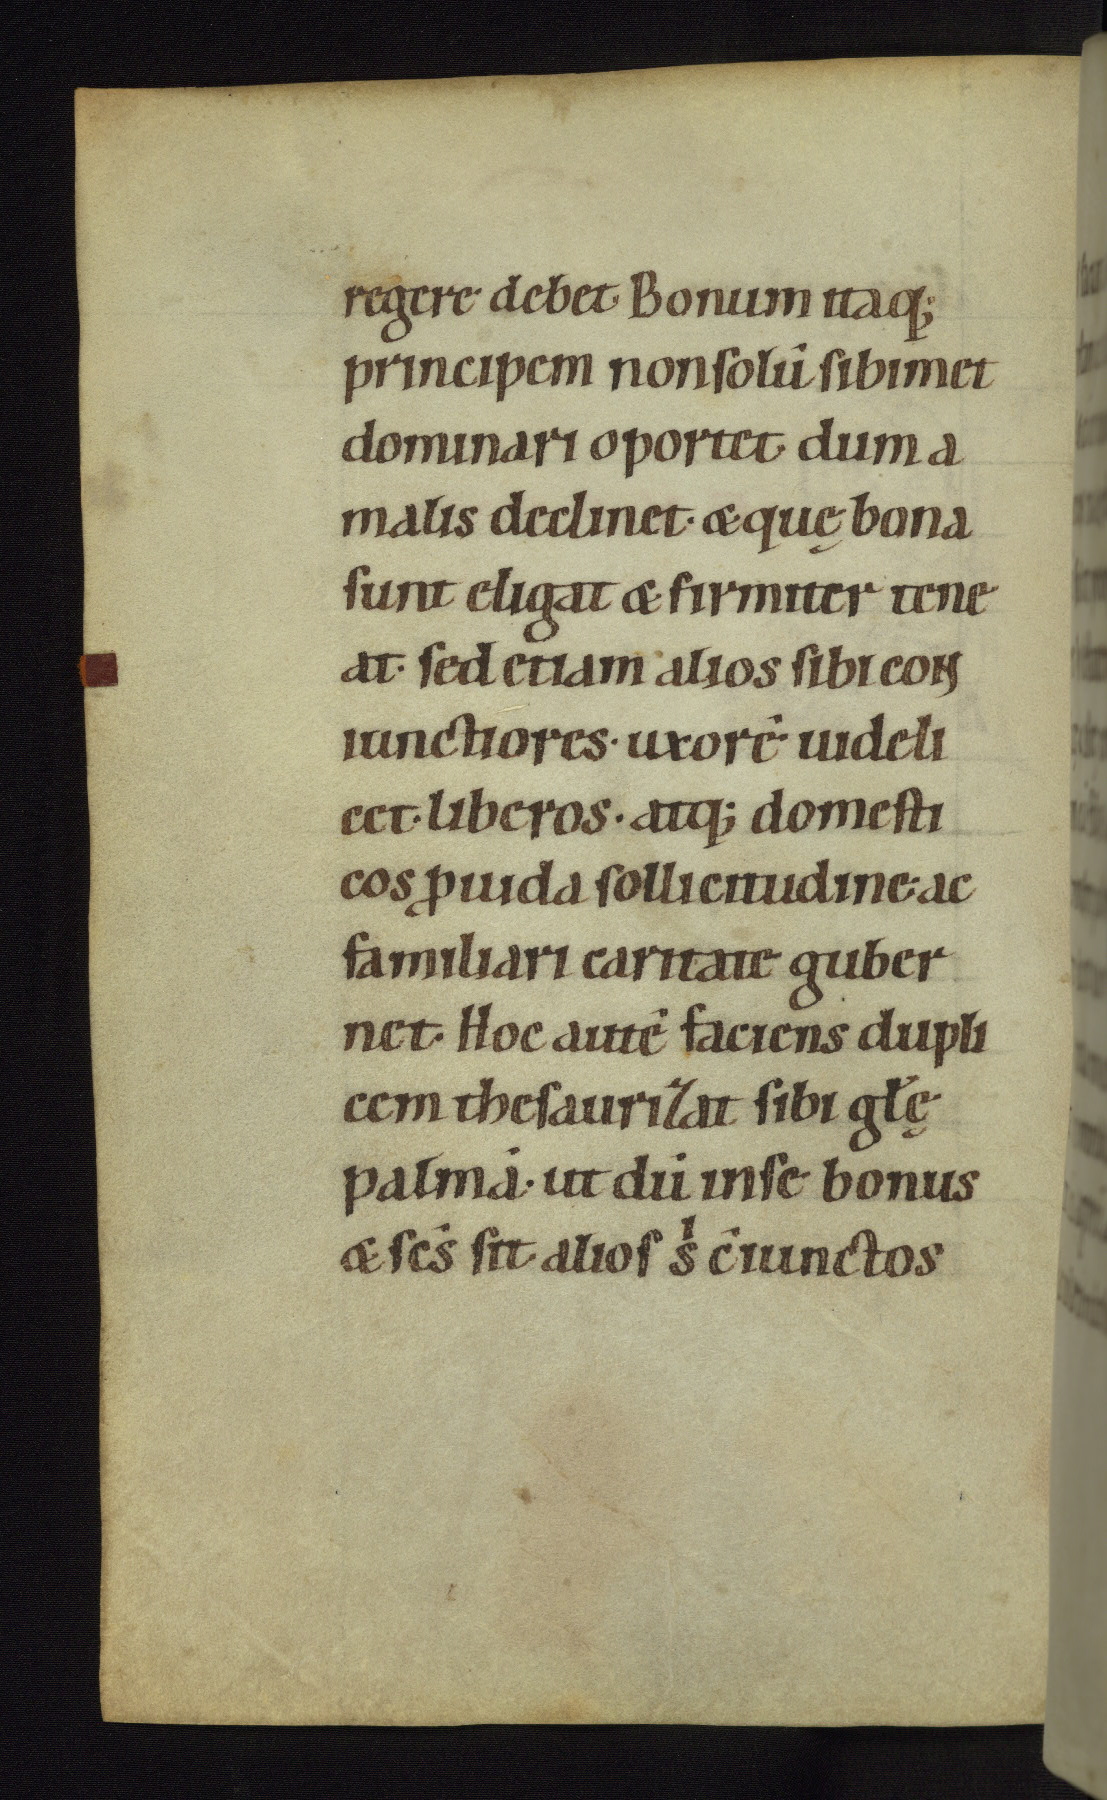 regere debet. Bonum itaq;
principem non solū sibimet
dominari oportet. dum a
malis declinet. & quę bona
sunt eligat & firmiter tene
at. sed etiam alios sibi con
iunctiores. uxorē uideli
cet. liberos. atq; domesti
cos ꝓuida sollicitudine. ac
familiari caritate guber
net. Hoc autē faciens dupli
cem thesaurizat sibi gl̄ę
palmā. ut dū in se bonus
& sc̄s sit alios s^i c̄iunctos